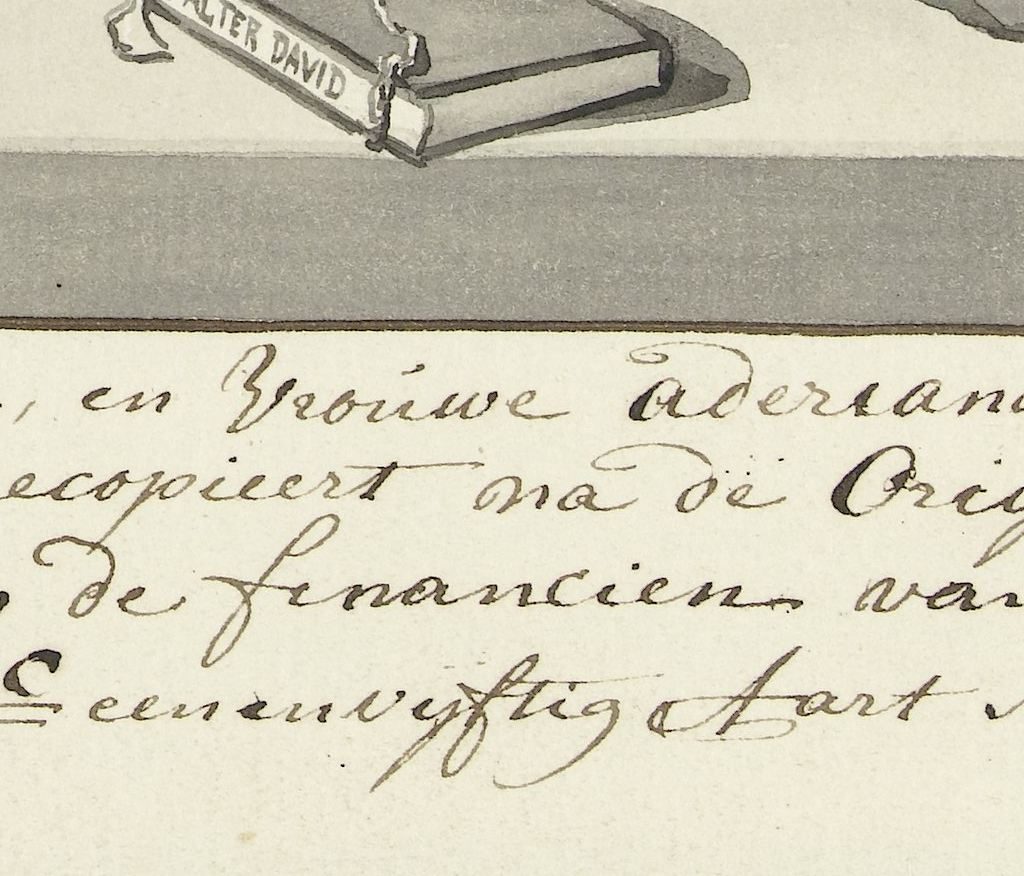 ALTER DAVID
, en Vrouwe aderiana
ecopieert na de Orig
de financien van
c eenenvyftig Aart